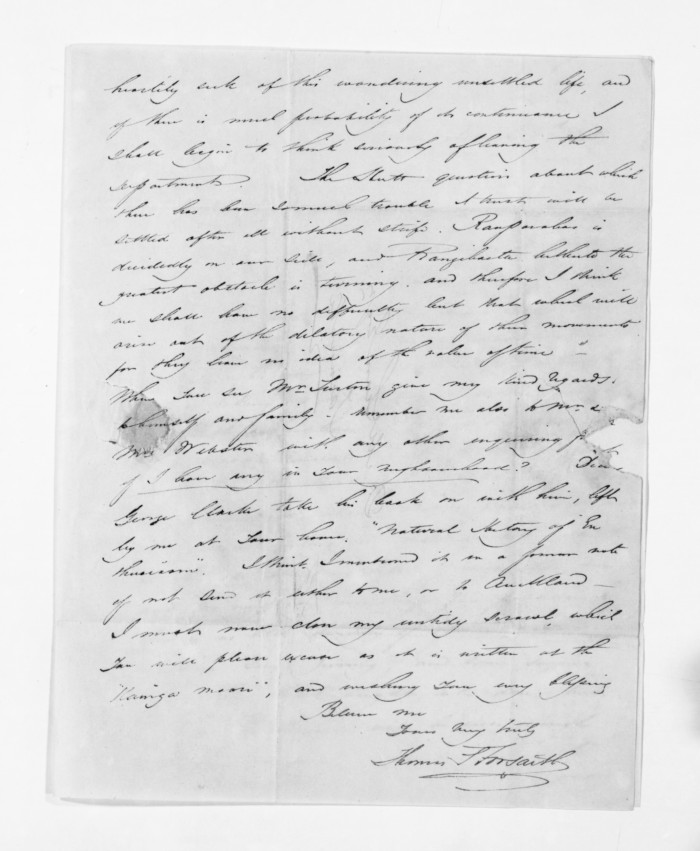 heartily sick of this wandering unsettled life, and
if there is much probability of its continuance I
shall begin to think seriously of leaving the
department. The Hutt question about which
there has been so much trouble I trust will be
settled after all without strife. Rauparaha is
decidedly on our side, and Rangihaeta hitherto the
greatest obstacle is turning, and therefore I think
we shall have no difficulty but that which will
arise out of the dilatory nature of their movements
for they have no idea of the value of time"–
When you see Mr Turton give my kind regards.
to himself and family – remember me also to Mr &
Mrs Webster with any other enquiring
if I have any in your neighbourhood?
George Clarke take his book on with him, left
by me at your house. "Natural History of En
thusiasm". I think I mentioned it in a former note
if not send it either to me, or to Auckland –
I must now close my untidy scrawl, which
you will please excuse as it is written at the
"Kainga maori", and wishing you every blessing
Believe me
Yours very truly
Thomas S Forsaith